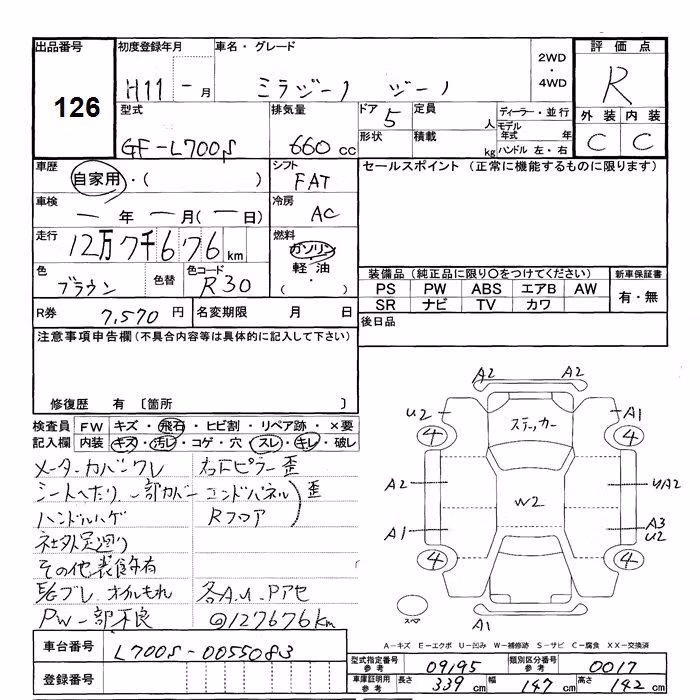 出品番号 初度登録年月 車名・グレード 2WD・4WD 評価点
126 H11 - 月 ミラジーノ ジーノ R
型式 排気量 ドア 5 定員 人 ディーラー・並行 外装 内装
GF-L700S 660 cc 形状 積載 kg モデル年式 年 C C
ハンドル 左・右
車歴 自家用・( ) シフト FAT セールスポイント (正常に機能するものに限ります)
車検 ― 年 ― 月(― 日) 冷房 AC
走行 12万7千676 km 燃料 ガソリン・軽油 ( ・ )
色 ブラウン 色替 色コード R30 装備品(純正品に限り○をつけてください) 新車保証書
PS PW ABS エアB AW 有・無
SR ナビ TV カワ
R券 7,570 円 名変期限 月 日 後日品
注意事項申告欄(不具合内容等は具体的に記入して下さい)
修復歴 有 〔箇所 〕
検査員 FW キズ・飛石・ヒビ割・リペア跡・×要
記入欄 内装 キズ・汚レ・コゲ・穴・スレ・キレ・破レ
メーターカバーワレ 右Fピラー歪
シートへたり 一部カバー エンドパネル 歪
ハンドルハゲ Rフロア
社外足廻り
その他装飾有
E/gブレ オイルもれ 各A.U.Pアセ
PW一部不良 @127676km
A2 A2
U2 ステッカー A1
4 4
A2 W2 UA2
A1 A3
U2
4 4
スペア A1
A-キズ E-エクボ U-凹み W-補修跡 S-サビ C-腐食 XX-交換済
車台番号 L700S-0055083
型式指定番号 参考 09195 類別区分番号 参考 0017
登録番号 車庫証明用 参考 長さ 339 cm 幅 147 cm 高さ 142 cm